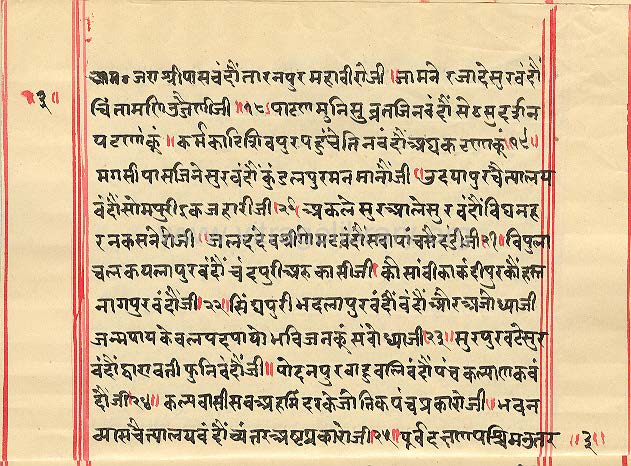 जग श्रीपासवंदौं तारनपुर महावीरोजी ॥ जामनेरजादेसुरवंदौं
॥३॥ चिंतामणि उजैणीजी ॥१८॥ पाटण मुनिसुव्रतजिनवंदौं सेठसुदर्शन
पटणकूं ॥ कर्मकाटि शिवपुर पहुंचे तिनवंदौं अघकटणकूं ॥१९॥
मगसीपासजिनेसुरवंदौं कुंडलपुर मन मानौंजी ॥ उदयापुर चैत्यालय
वंदौं सोमपुरी जहारीजी ॥२०॥ अकलेसुर आलेसुर वंदौं विघनह
जी ॥
चलकयलापुरवंदौं चंदपुरी अरु कासीजी ॥ कौसांवी काकंदीपुर
नागपुरवंदौंजी ॥२२॥ सिंघपुरी भदलापुरवंदौं वंदौं और अजोध्याजी
जन्मपाय केवलपदपायो भविजनकूं संबोध्याजी ॥२३॥ सुरपुर वटेसुर
वंदौं द्वारावती फुनिवंदौंजी ॥ पोदनपुर बाहुबलिवंदौं पंचकल्याणकवं
दौंजी ॥२४॥ कल्पवासी सव अहमिंदरके जोतिक पंचप्रकारोजी ॥ भवन
व्यासचैत्यालयवंदौं व्यंतर अष्टप्रकारोजी ॥२५॥ पूर्वदक्षणपश्चिमउतर ॥३॥